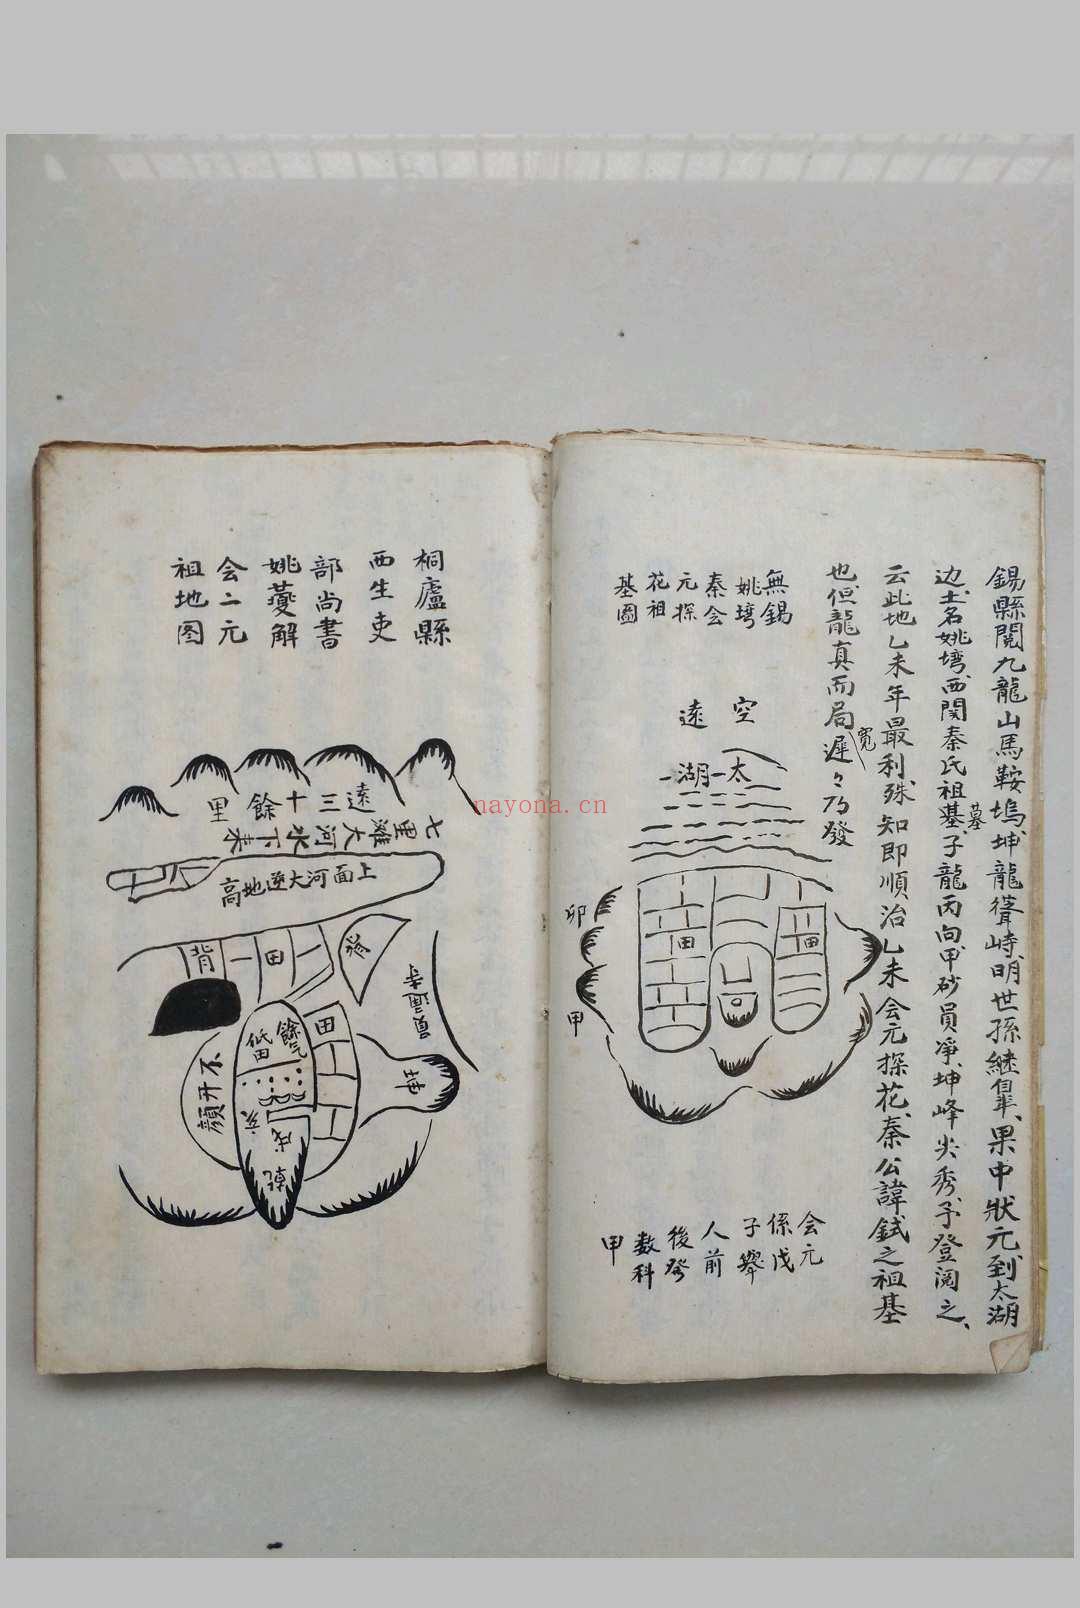 錫縣閱九龍山馬鞍塢坤龍聳峙、明世孫継皐、果中狀元、到太湖
边、土名姚塆、西関秦氏祖基、子龍丙向、甲砂員净、坤峰尖秀、予登阅之、
墓
云此地乙未年最利、殊知即順治乙未会元探花、秦公諱鉽之祖基
也、但龍真而局遲々乃發
寛
無錫
姚塆
秦会
元探
花祖
基圖
空
遠
太湖
卯
甲
田
田
会元
係戊
子舉
人前
後發
数科
甲
桐廬縣
西生吏
部尚書
姚夔解
会二元
祖地图
遠三十餘里
七里灘大河水下来
上面河大邊地高
背
田
背
田
坤
餘气
低田
不开顔
亥
戌
乾
nayona.cn